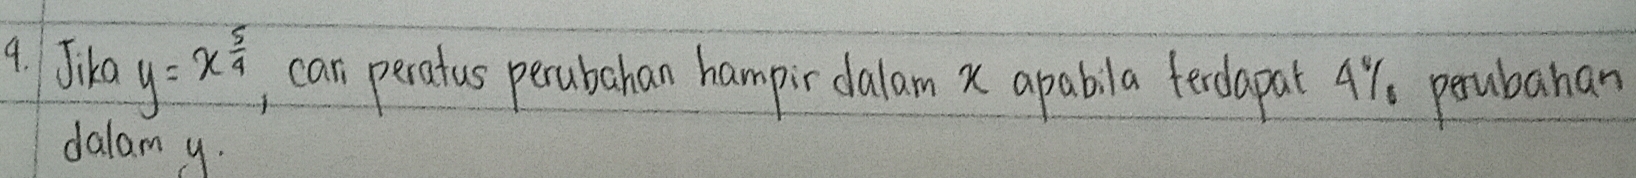 9. Jika y = x^{5/4}, cari peratus perubahan hampir dalam x apabila terdapat 4% perubahan
dalam y.